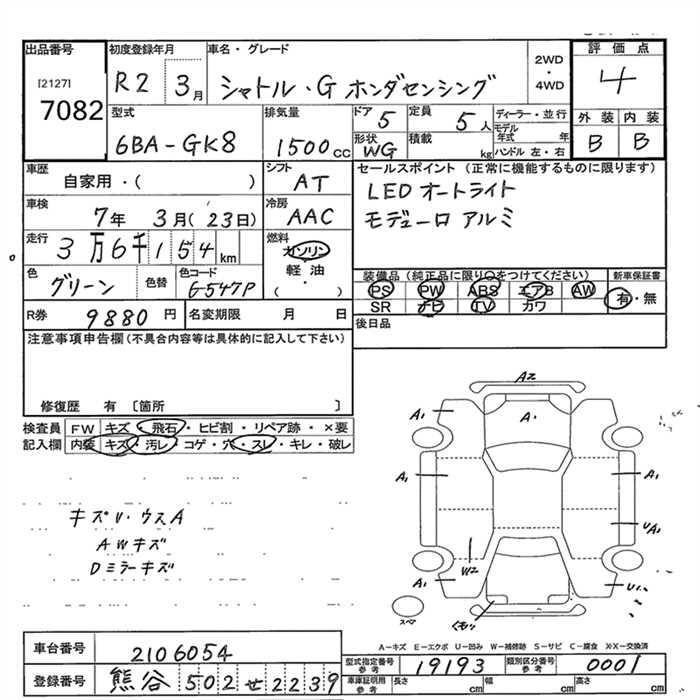 出品番号 初度登録年月 車名・グレード 2WD・4WD 評価点
[2127] 7082 R2 3月 シャトル・G ホンダセンシング 4
型式 排気量 ドア 5 定員 5人 ディーラー・並行 外装 内装
6BA-GK8 1500cc 形状 WG 積載 kg モデル年式 年 ハンドル 左・右 B B
車歴 自家用・( ) シフト AT セールスポイント (正常に機能するものに限ります)
車検 7年 3月(23日) 冷房 AAC LED オートライト
モデューロ アルミ
走行 3万6千154km 燃料 ガソリン 軽油 ( ・ )
色 グリーン 色替 色コード G547P
装備品(純正品に限り○をつけてください) 新車保証書
PS PW ABS エアB AW 有・無
SR ナビ TV カワ
R券 9880円 名変期限 月 日 後日品
注意事項申告欄(不具合内容等は具体的に記入して下さい)
修復歴 有 [箇所 ]
検査員 FW キズ・飛石・ヒビ割・リペア跡・×要
記入欄 内装 キズ・汚レ・コゲ・穴・スレ・キレ・破レ
キズU・ウスA
AWキズ
Dミラーキズ
A2
A1 A1
A1
A1 A1
UA1
W2
A1 U1
スペア
A-キズ E-エクボ U-凹み W-補修跡 S-サビ C-腐食 X・XX-交換済
車台番号 2106054 型式指定番号 参考 19193 類別区分番号 参考 0001
登録番号 熊谷 502 せ 2239 車庫証明用 参考 長さ cm 幅 cm 高さ cm